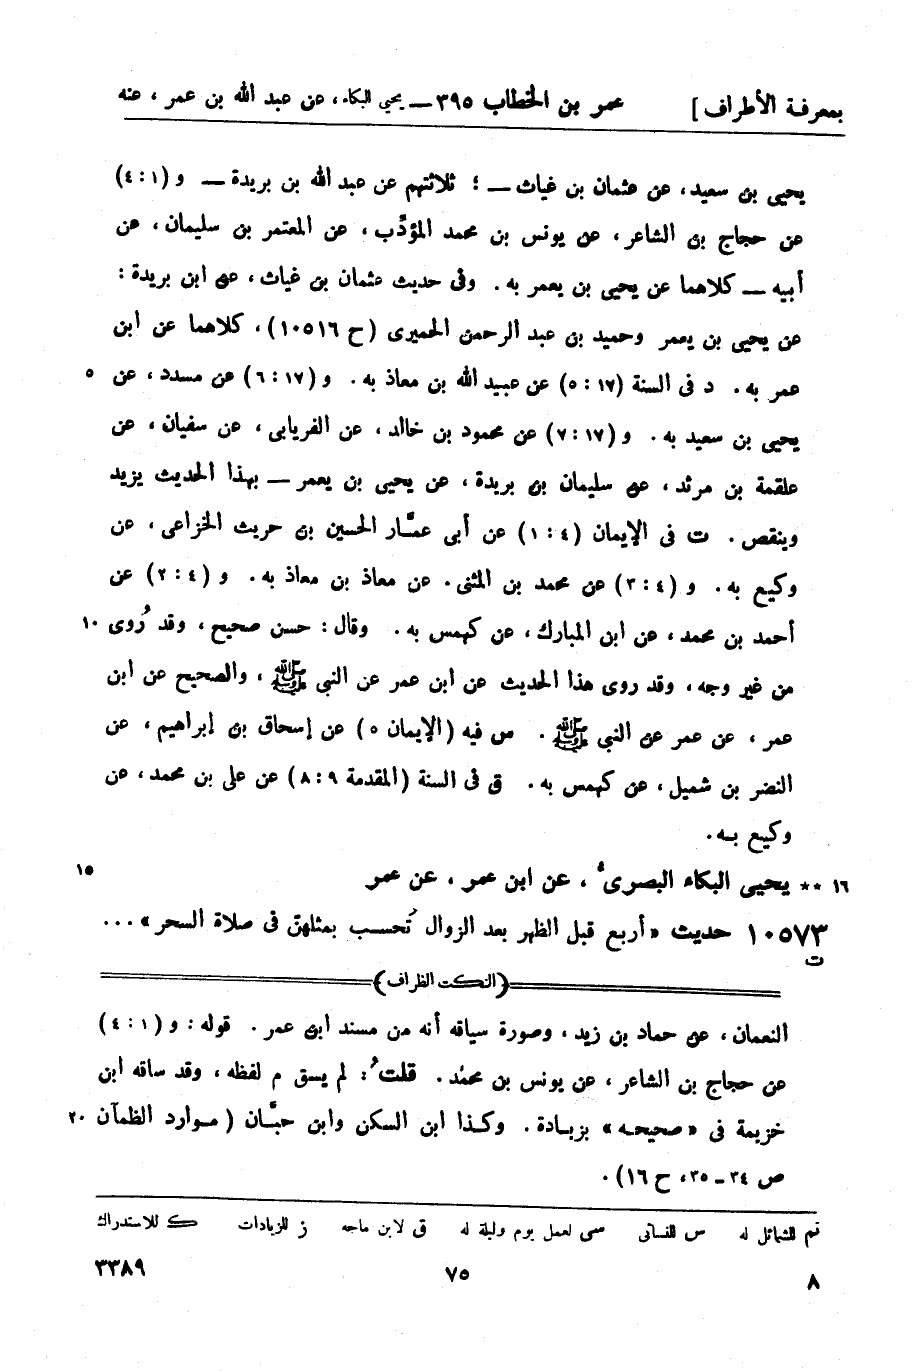 بمعرفة الأطراف ] عمر بن الخطاب ٣٩٥ — يحيى البكاء، عن عبد الله بن عمر، عنه
يحيى بن سعيد، عن عثمان بن غياث — ؛ ثلاثتهم عن عبد الله بن بريدة — و (٤:١)
عن حجاج بن الشاعر، عن يونس بن محمد المؤدِّب، عن المعتمر بن سليمان، عن
أبيه — كلاهما عن يحيى بن يعمر به. وفى حديث عثمان بن غياث، عن ابن بريدة:
عن يحيى بن يعمر وحميد بن عبد الرحمن الحميرى (ح ١٠٥١٦)، كلاهما عن ابن
عمر به. د فى السنة (٥:١٧) عن عبيد الله بن معاذ به. و (٦:١٧) عن مسدد، عن ٥
يحيى بن سعيد به. و (٧:١٧) عن محمود بن خالد، عن الفريابى، عن سفيان، عن
علقمة بن مرثد، عن سليمان بن بريدة، عن يحيى بن يعمر — بهذا الحديث يزيد
وينقص. ت فى الإيمان (١:٤) عن أبى عمَّار الحسين بن حريث الخزاعى، عن
وكيع به. و (٣:٤) عن محمد بن المثنى. عن معاذ بن معاذ به. و (٢:٤) عن
أحمد بن محمد، عن ابن المبارك، عن كهمس به. وقال: حسن صحيح، وقد رُوى ١٠
من غير وجه، وقد روى هذا الحديث عن ابن عمر عن النبى ﷺ، والصحيح عن ابن
عمر، عن عمر عن النبى ﷺ. س فيه (الإيمان ٥) عن إسحاق بن إبراهيم، عن
النضر بن شميل، عن كهمس به. ق فى السنة (المقدمة ٨:٩) عن على بن محمد، عن
وكيع به.
١٦ ** يحيى البكاء البصرى، عن ابن عمر، عن عمر ١٥
١٠٥٧٣ حديث «أربع قبل الظهر بعد الزوال تُحسب بمثلهن فى صلاة السحر»...
ت
(النكت الظراف)
النعمان، عن حماد بن زيد، وصورة سياقه أنه من مسند ابن عمر. قوله: و (٤:١)
عن حجاج بن الشاعر، عن يونس بن محمد. قلتُ: لم يسق م لفظه، وقد ساقه ابن
خزيمة فى «صحيحه» بزيادة. وكذا ابن السكن وابن حبَّان (موارد الظمآن ٢٠
ص ٣٤-٣٥، ح ١٦).
تم للشمائل له س للنسائى سى لعمل يوم وليلة له ق لابن ماجه ز للزيادات ك للاستدراك
٨ ٧٥ ٣٣٨٩